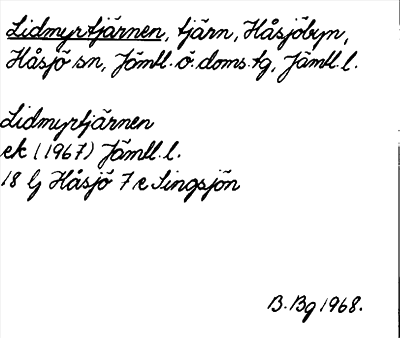 Lidmyrtjärnen, tjärn, Håsjöbyn,
Håsjö sn, Jämtl. ö. doms.tg, Jämtl. l.
Lidmyrtjärnen
ek (1967) Jämtl. l.
18 Ij Håsjö 7 e Singsjön
B. Bg 1968.